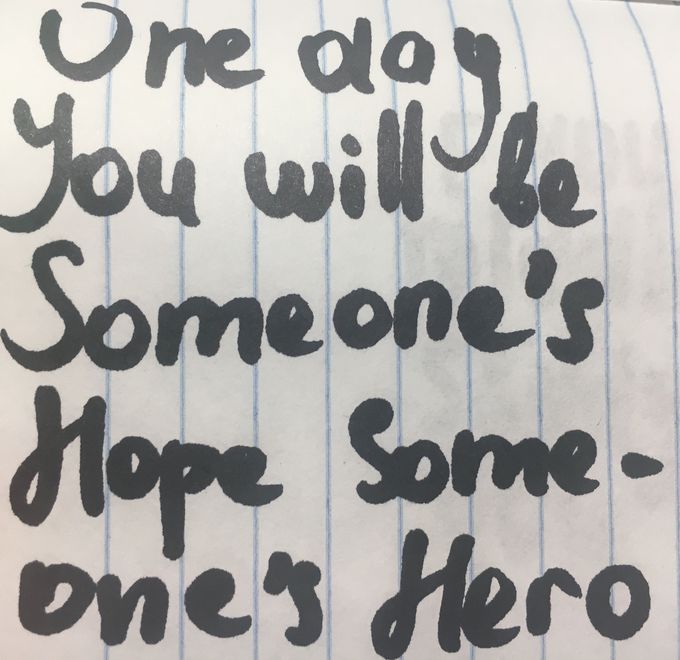 One day
You will be
Someone's
Hope Some-
one's Hero